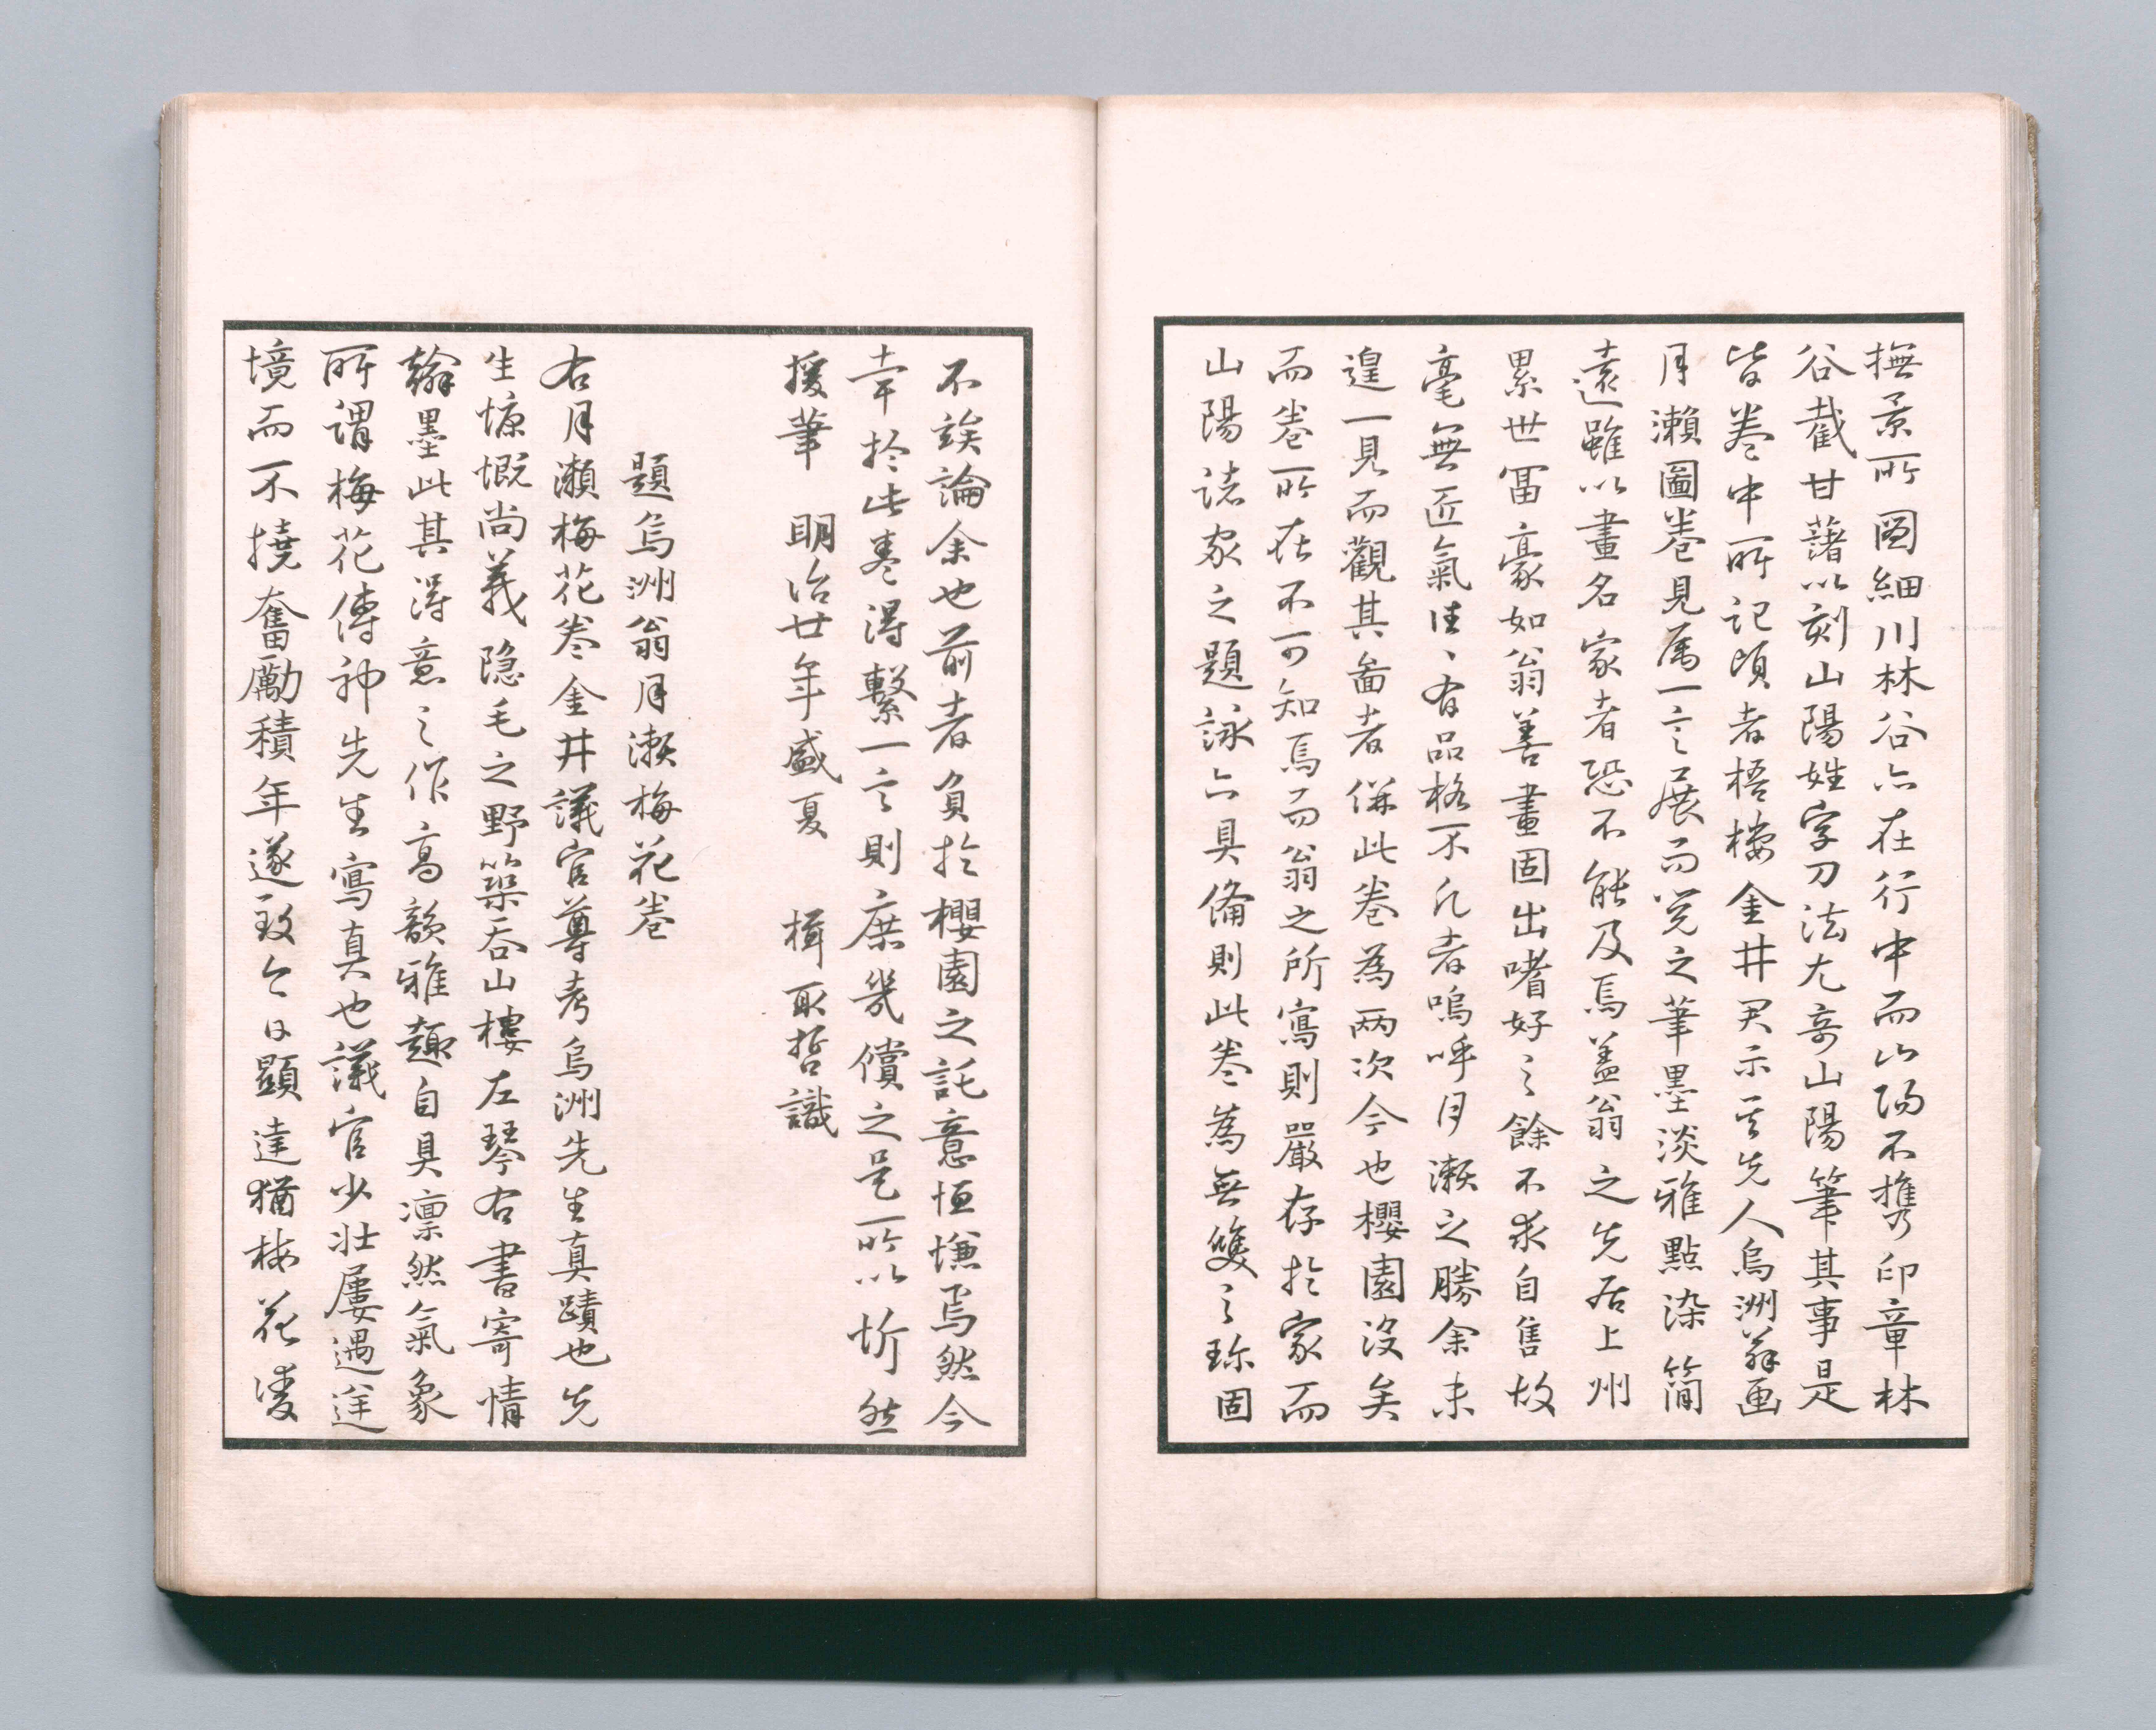 撫景所圖細川林谷亦在行中而山陽不携印章林
谷截甘藷以刻山陽姓字刀法尤奇山陽筆其事是
皆卷中所記頃者梧樓金井君示其先人烏洲翁画
月瀬圖卷見属一言展而覽之筆墨淡雅點染簡
遠雖以畫名家者恐不能及焉盖翁之先居上州
累世冨豪如翁善畫固出嗜好之餘不求自售故
毫無匠氣往々有品格不凡者嗚呼月瀬之勝余未
遑一見而觀其畫者併此卷為两次今也櫻園没矣
而卷所在不可知焉而翁之所寫則嚴存於家而
山陽諸家之題詠亦具備則此卷為無雙之珎固
不竢論余也前者負於櫻園之託意恒慊焉然今
幸於此卷得繫一言則庶幾償之是所以忻然
援筆　明治廿年盛夏　楫取哲識
題烏洲翁月瀬梅花卷
右月瀬梅花卷金井議官尊考烏洲先生真蹟也先
生慷慨尚義隠毛之野築呑山樓左琴右書寄情
翰墨此其得意之作高韻雅趣自具凛然氣象
所謂梅花傳神先生寫真也議官少壮屢遇迍
境而不撓奮勵積年遂致今日顯達猶梅花凌